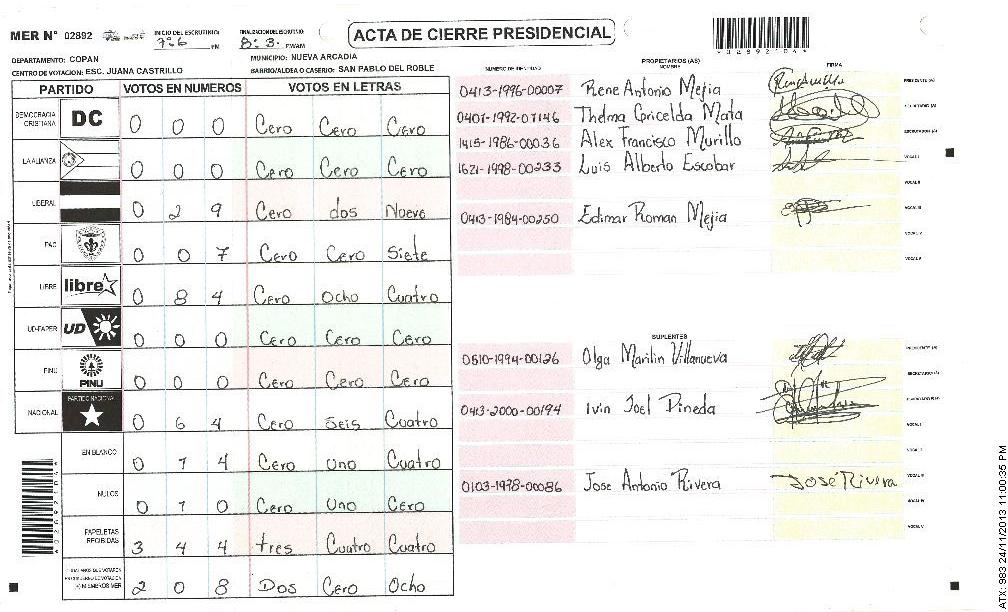 MER Nº 02892
INICIO DEL ESCRUTINIO: 7:6 PM
FINALIZACION DEL ESCRUTINIO: 8:3. PM/AM
ACTA DE CIERRE PRESIDENCIAL
DEPARTAMENTO: COPAN
MUNICIPIO: NUEVA ARCADIA
CENTRO DE VOTACION: ESC. JUANA CASTRILLO
BARRIO/ALDEA O CASERIO: SAN PABLO DEL ROBLE
PARTIDO VOTOS EN NUMEROS VOTOS EN LETRAS
DEMOCRACIA CRISTIANA DC 0 0 0 Cero Cero Cero
LA ALIANZA 0 0 0 Cero Cero Cero
LIBERAL 0 2 9 Cero dos Nueve
PAC 0 0 7 Cero Cero Siete
LIBRE libre 0 8 4 Cero Ocho Cuatro
UD-FAPER UD 0 0 0 Cero Cero Cero
PINU PINU 0 0 0 Cero Cero Cero
NACIONAL PARTIDO NACIONAL 0 6 4 Cero Seis Cuatro
EN BLANCO 0 1 4 Cero Uno Cuatro
NULOS 0 1 0 Cero Uno Cero
PAPELETAS RECIBIDAS 3 4 4 tres Cuatro Cuatro
(+) MIEMBROS MER 2 0 8 Dos Cero Ocho
PROPIETARIOS (AS)
NUMERO DE IDENTIDAD NOMBRE FIRMA
0413-1996-00007 Rene Antonio Mejia PRESIDENTE (A)
0401-1992-01146 Thelma Gricelda Mata SECRETARIO (A)
1415-1986-00036 Alex Francisco Murillo ESCRUTADOR (A)
1621-1998-00233 Luis Alberto Escobar VOCAL I
VOCAL II
0413-1984-00250 Edimar Roman Mejia VOCAL III
VOCAL IV
VOCAL V
SUPLENTES
0510-1994-00126 Olga Marilin Villanueva PRESIDENTE (A)
SECRETARIO (A)
0413-2000-00194 Ivin Joel Pineda ESCRUTADOR (A)
VOCAL I
VOCAL II
0103-1998-00086 Jose Antonio Rivera José Rivera VOCAL III
VOCAL IV
VOCAL V
ATX: 983 24/11/2013 11:00:35 PM